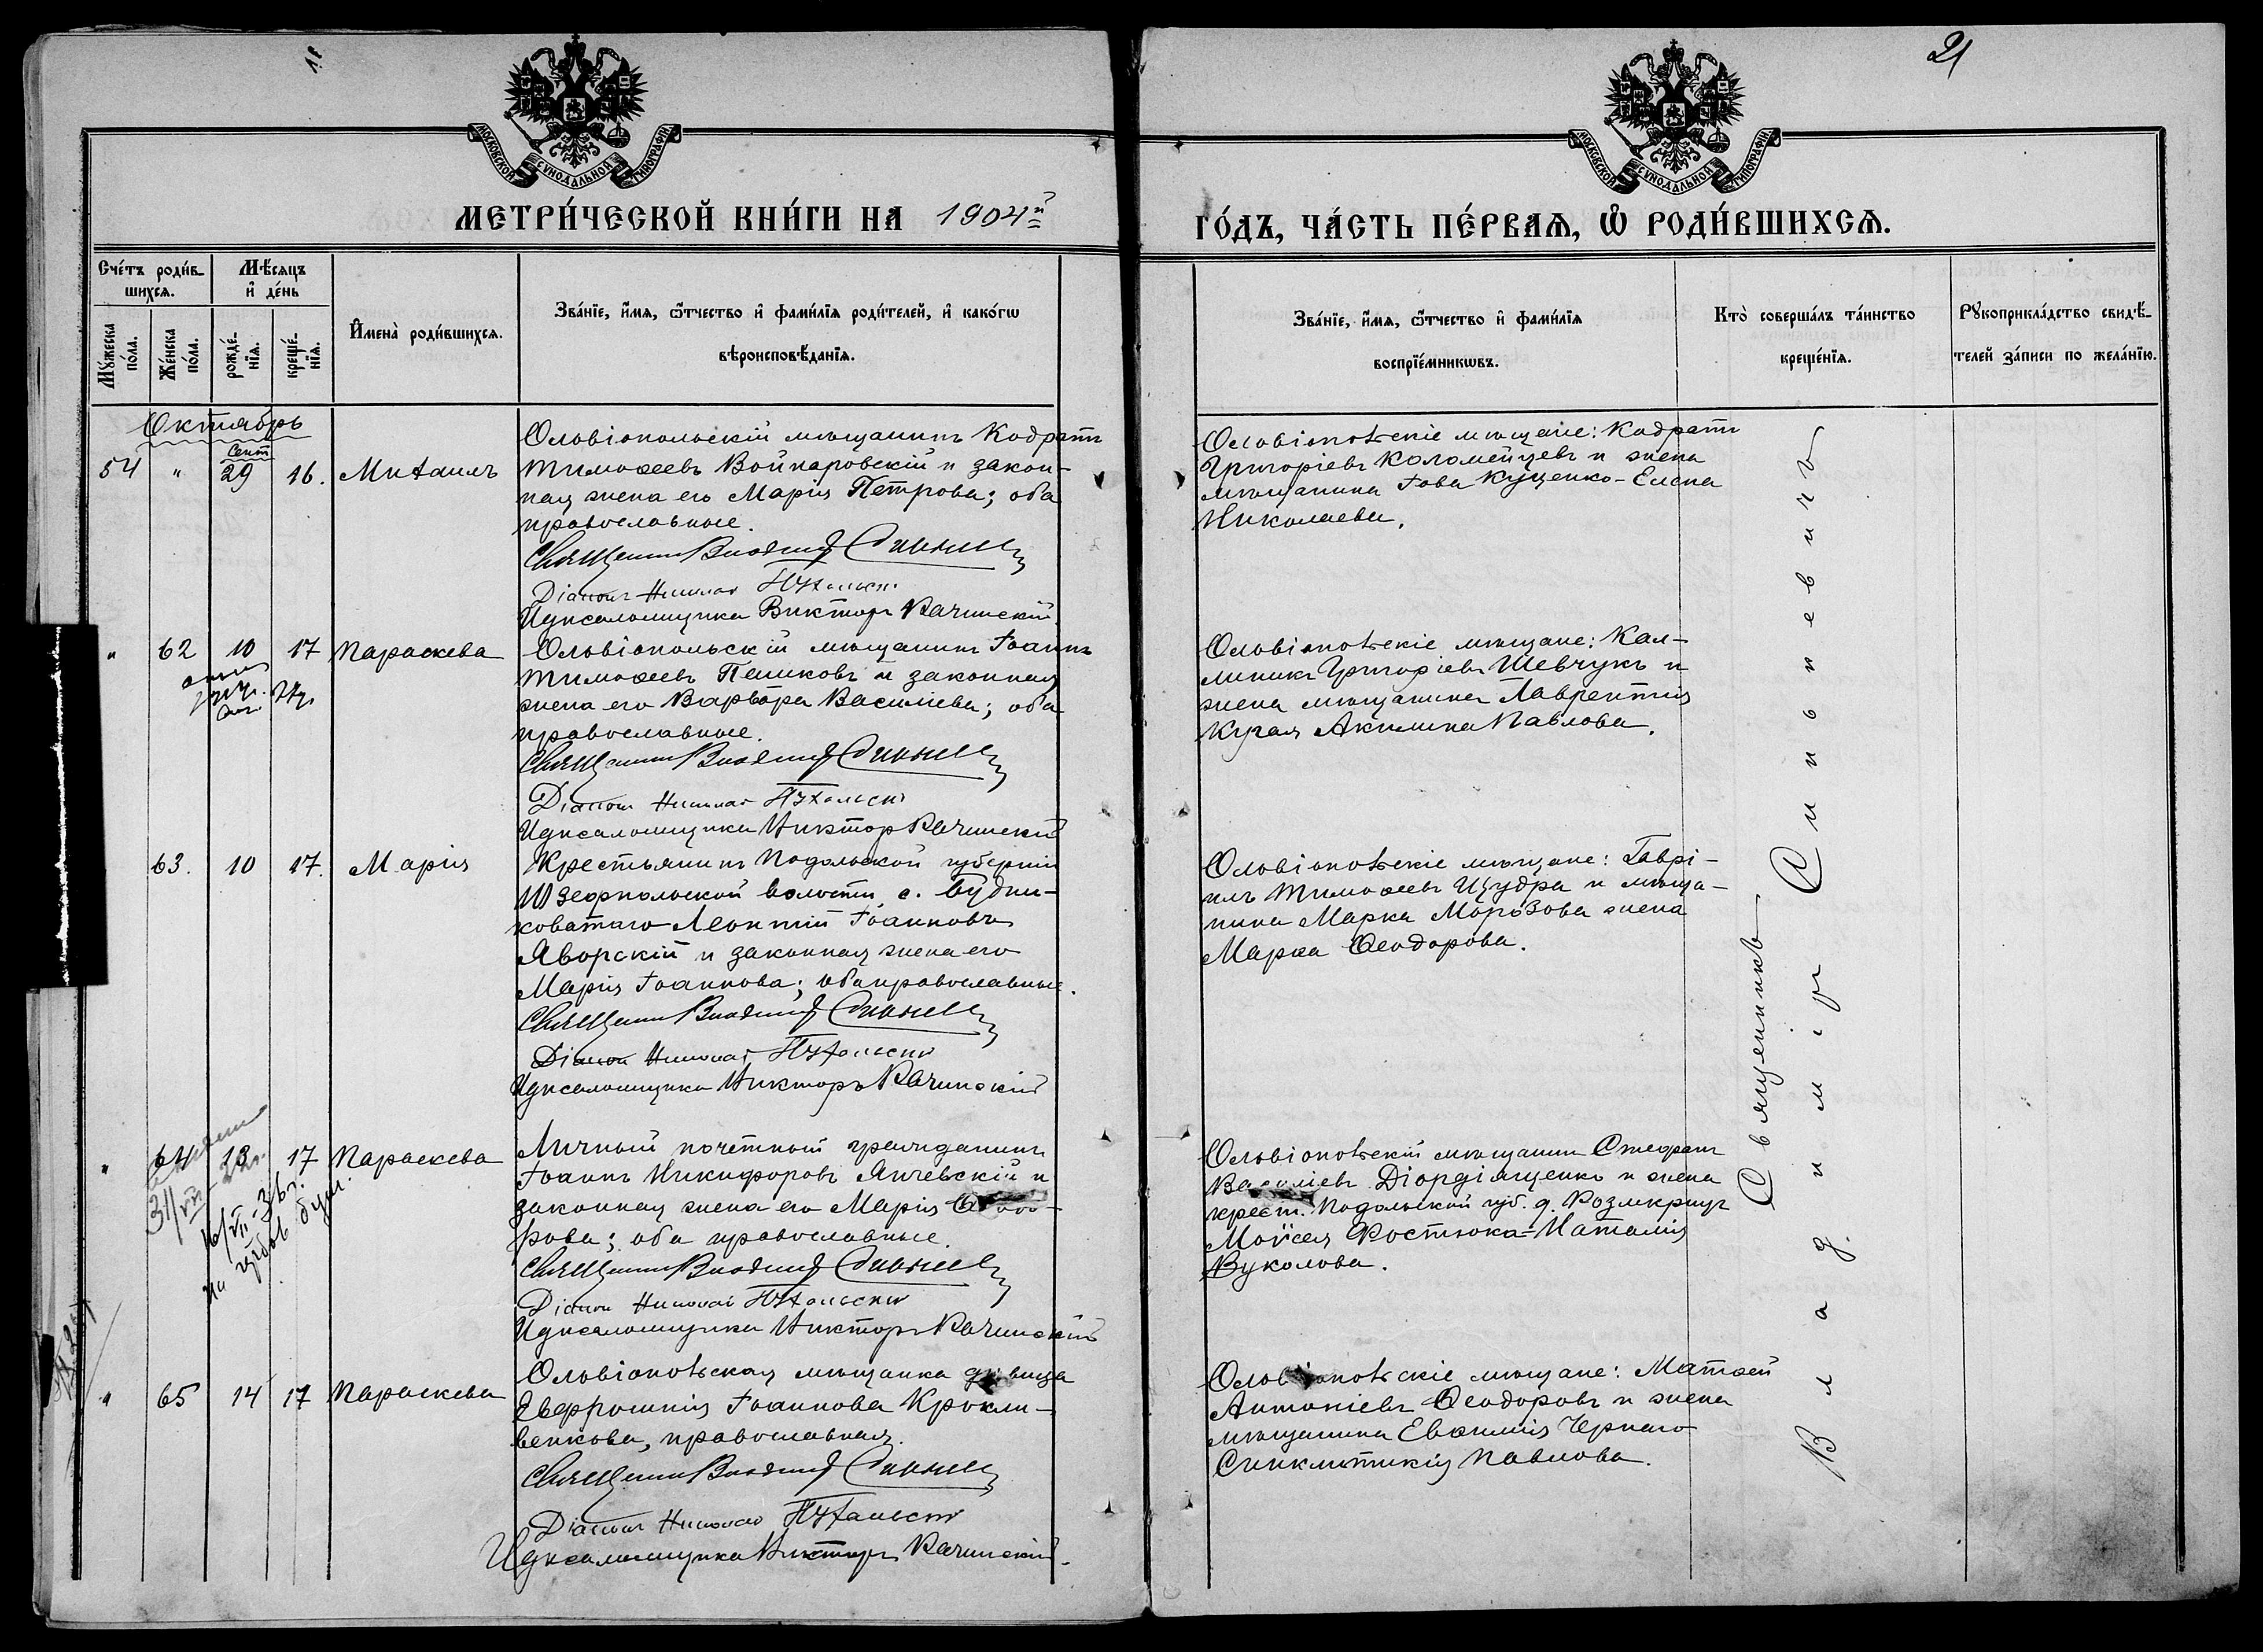 21
МОСКОВСКОЙ СѴНОДАЛЬНОЙ ТИПОГРАФІИ
МОСКОВСКОЙ СѴНОДАЛЬНОЙ ТИПОГРАФІИ
МЕТРИ́ЧЕСКОЙ КНИ́ГИ НА 1904й
ГО́ДЪ, ЧА́СТЬ ПЕ́РВАѦ, Ѡ҆ РОДИ́ВШИХСѦ.
Сче́тъ роди́в-
шихсѧ.
Мѣ́сяцъ
и҆ де́нь
Мꙋ́жеска по́ла.
Же́нска по́ла.
рожде́-нїѧ.
креще́-нїѧ.
И҆мена̀ роди́вшихсѧ.
Зва́нїе, и҆́мѧ, ѻ҆́тчество и҆ фами́лїѧ роди́телей, и҆ како́гѡ
вѣроисповѣ́данїѧ.
Зва́нїе, и҆́мѧ, ѻ҆́тчество и҆ фами́лїѧ
воспрїе́мникѡвъ.
Кто̀ соверша́лъ та́инство
креще́нїѧ.
Рꙋкоприкла́дство свидѣ́-
телей за́писи по жела́нїю.
Октябрь
Сент
54 " 29 16. Михаилъ
Ольвіопольскій мѣщанинъ Кодратъ
Тимоѳеевъ Войнаровскій и закон-
ная жена его Марія Петрова; оба
православные.
Священникъ Владиміръ Синьневичъ
Діаконъ Николай
И.д. псаломщика Викторъ Качинскій.
Ольвіопольскіе мѣщане: Кодратъ
Григоріевъ Коломейцевъ и жена
мѣщанина Іова Куценко - Елена
Николаева.
" 62 10 17 Параскева
Ольвіопольскій мѣщанинъ Іоаннъ
Тимоѳеевъ Пешковъ и законная
жена его Варвара Василіева; оба
православные.
Священникъ Владиміръ Синьневичъ
Діаконъ Николай
И.д. псаломщика Викторъ Качинскій
Ольвіопольскіе мѣщане: Кал-
линикъ Григоріевъ Шевчукъ и
жена мѣщанина Лаврентія
Кугая Акилина Павлова.
63. 10 17. Марія
Крестьянинъ Подольской губерніи
Юзефпольской волости, с. Будни-
коватаго Леонтій Іоанновъ
Яворскій и законная жена его
Марія Іоаннова; оба православные.
Священникъ Владиміръ Синьневичъ
Діаконъ Николай
И.д. псаломщика Викторъ Качинскій
Ольвіопольскіе мѣщане: Гаврі-
илъ Тимоѳеевъ Щудра и мѣща-
нина Марка Морозова жена
Марѳа Ѳеодорова.
" 64 13 17 Параскева
Личный почетный гражданинъ
Іоаннъ Никифоровъ Янчевскій и
законная жена его Марія Ѳеодо-
рова; оба православные.
Священникъ Владиміръ Синьневичъ
Діаконъ Николай
И.д. псаломщика Викторъ Качинскій
Ольвіопольскій мѣщанинъ Стефанъ
Василіевъ Діордіященко и жена
крест. Подольской губ. д.
Моисея Фостюка - Наталія
Вуколова.
" 65 14 17 Параскева
Ольвіопольская мѣщанка дѣвица
Евфросинія Іоаннова Крокли-
венкова, православная.
Священникъ Владиміръ Синьневичъ
Діаконъ Николай
И.д. псаломщика Викторъ Качинскій.
Ольвіопольскіе мѣщане: Матѳей
Антоніевъ Ѳеодоровъ и жена
мѣщанина Евѳимія Чернаго
Синклитикія Павлова.
Священникъ
Владиміръ Синьневичъ